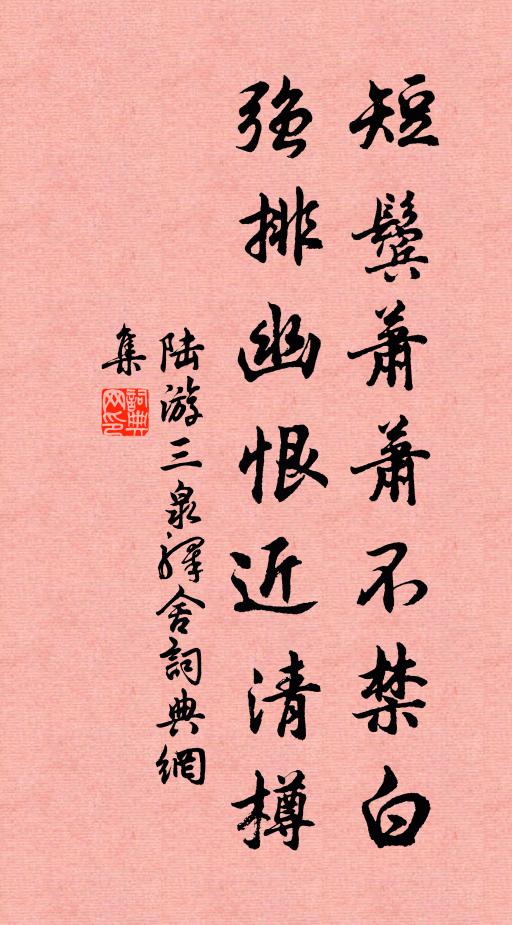 短鬓萧萧不禁白
強排幽恨近清樽
陆游三泉驿舍詞典網
集
詞典
网印